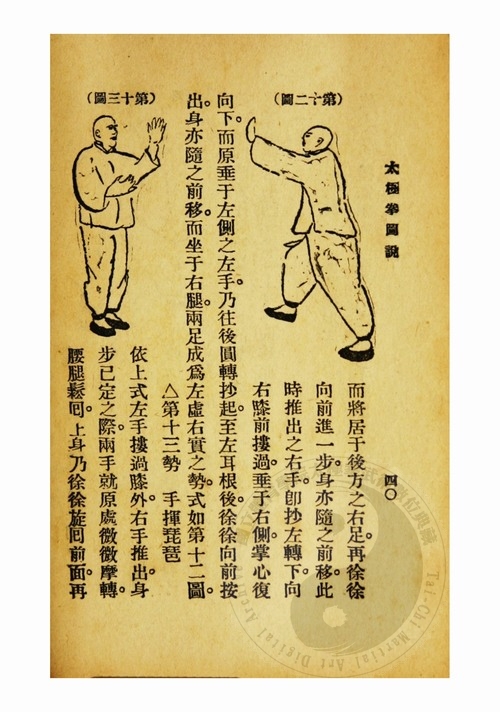 太極拳圖說
四〇
（第十二圖）
而將居于後方之右足。再徐徐
向前進一步。身亦隨之前移。此
時推出之右手。卽抄左轉下。向
右膝前摟過。垂于右側。掌心復
向下。而原垂于左側之左手。乃往後圓轉抄起。至左耳根後。徐徐向前按
出。身亦隨之前移。而坐于右腿。兩足成爲左虛右實之勢。式如第十二圖。
（第十三圖）
△第十三勢　手揮琵琶
依上式左手摟過膝外。右手推出。身
步已定之際。兩手就原處微微摩轉。
腰腿鬆囘。上身乃徐徐旋囘前面。再
Tai-Chi Martial Art Digital